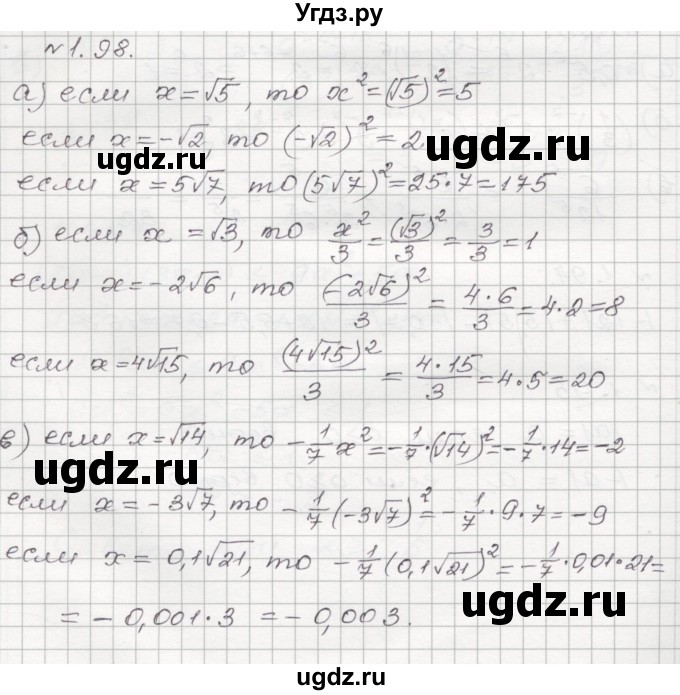 Угдз.ру
№1.98.
а) если x=√5, то x²=(√5)²=5
если x=-√2, то (-√2)²=2.
ugdz.ru
ugdz.ru
если x=5√7, то (5√7)²=25·7=175
б) если x=√3, то x²/3=(√3)²/3=3/3=1
если x=-2√6, то (-2√6)²/3=4·6/3=4·2=8
ugdz.ru
ugdz.ru
если x=4√15, то (4√15)²/3=4·15/3=4·5=20
в) если x=√14, то -1/7x²=-1/7·(√14)²=-1/7·14=-2
ugdz.ru
если x=-3√7, то -1/7(-3√7)²=-1/7·9·7=-9
если x=0,1√21, то -1/7(0,1√21)²=-1/7·0,01·21=
ugdz.ru
=-0,001·3=-0,003.
ugdz.ru
ugdz.ru